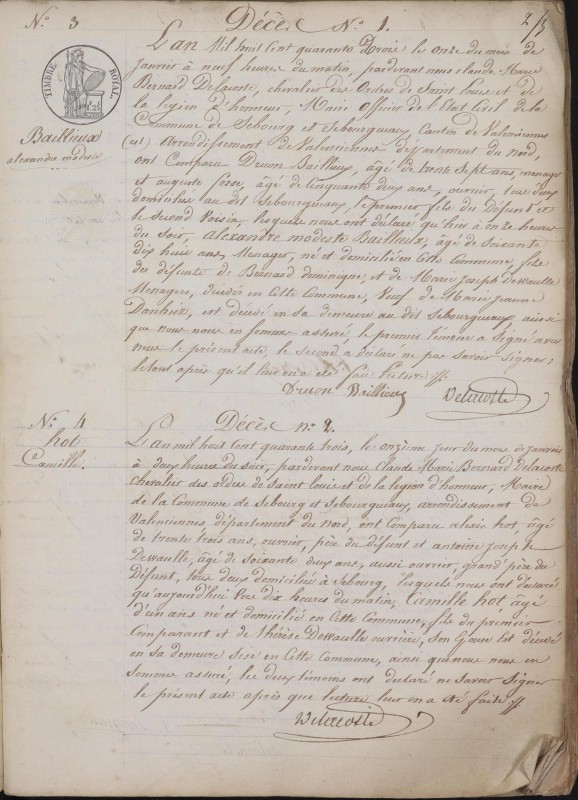 N.º 3
Décès N.º 1.
2/3
TIMBRE ROYAL.
Baillieux
alexandre modeste
L'an Mil huit Cent quarante Trois le onze du mois de
janvier à neuf heures du matin, pardevant nous claude Marie
Bernard Delacoste, chevalier des Ordres de Saint Louis et de
la légion d'honneur, Maire Officier de l'Etat Civil de la
Commune de Sebourg et Sebourquiaux, Canton de Valenciennes
(est) Arrondissement de Valenciennes département du Nord,
ont Comparu Druon Baillieux, âgé de trente Sept ans, menager
et auguste fosse, âgé de Cinquante deux ans, ouvrier, tous deux
domiciliés au dit Sebourquiaux, le premier fils du Défunt et
le Second Voisin, lesquels nous ont déclaré qu'hier à onze heures
du Soir, alexandre modeste Baillieux, âgé de Soixante
Dix huit ans, Menager, né et domicilié en Cette Commune, fils
des défunts de Bernard dominique, et de Marie Joseph Dewaulle
Menagers, décédés en Cette Commune, Veuf de Marie Jeanne
est décédé en Sa demeure au dit Sebourquiaux, ainsi
que nous nous en Sommes assuré, le premier témoin a Signé avec
nous le présent acte, le Second a déclaré ne pas Savoir Signer,
le tout après qu'il leur en a été fait Lecture //
Druon Baillieux
Delacoste
N.º 4
hot
Camille.
Décès n.º 2.
L'an mil huit Cent quarante trois, le onzième jour du mois de Janvier
à deux heures du soir, pardevant nous Claude Marie Bernard Delacoste
Chevalier des ordres de Saint Louis et de la légion d'honneur, Maire
de la Commune de Sebourg et Sebourquiaux, arrondissement de
Valenciennes département du Nord, ont Comparu hot, âgé
de trente trois ans, ouvrier, père du défunt et antoine Joseph
Dewaulle, âgé de Soixante deux ans, aussi ouvrier, grand père du
Défunt, tous deux domiciliés à Sebourg, lesquels nous ont déclaré
qu'aujourd'hui Vers dix heures du matin, Camille hot, âgé
d'un ans né et domicilié en Cette Commune, fils du premier
Comparant et de thérèse Dewaulle ouvrière, Son épouse Est décédé
en Sa demeure Sise en Cette Commune, ainsi que nous nous en
Sommes assuré, les deux témoins ont déclaré ne Savoir Signer
le présent acte après que lecture leur en a été faite //
Delacoste